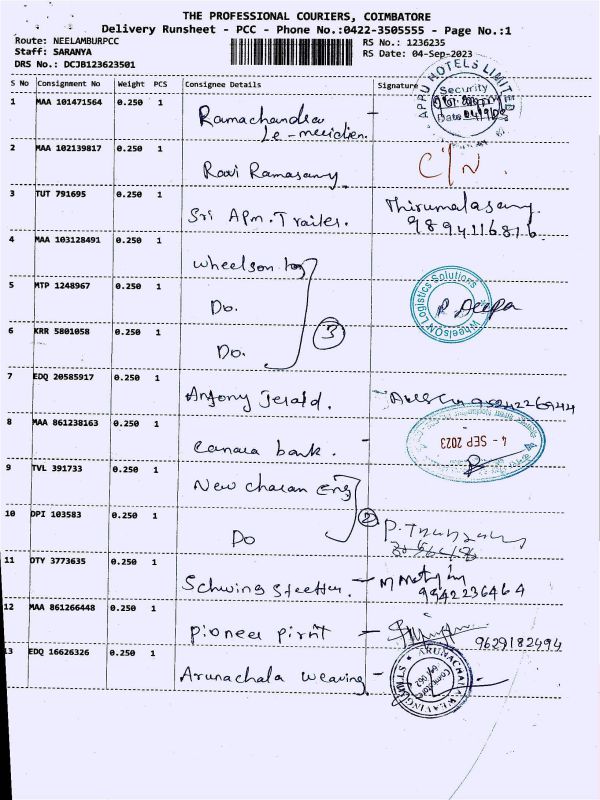 THE PROFESSIONAL COURIERS, COIMBATORE
Delivery Runsheet - PCC - Phone No.:0422-3505555 - Page No.:1
Route: NEELAMBURPCC
RS No.: 1236235
Staff: SARANYA
RS Date: 04-Sep-2023
DRS No.: DCJB123623501
S No Consignment No Weight PCS Consignee Details Signature
APPU HOTELS LIMITED
Security
Date 04/9/
1 MAA 101471564 0.250 1 Ramachandra
Le-meridien.
2 MAA 102139817 0.250 1 Ravi Ramasamy C/N.
3 TUT 791695 0.250 1 Sri Apm. Trailer. Thirumalasamy
9894116816.
4 MAA 103128491 0.250 1 Wheelson log
5 MTP 1248967 0.250 1 Do.
WheelsON Logistics Solutions
P. Deepa
6 KRR 5801058 0.250 1 Do. 3
7 EDQ 20585917 0.250 1 Antony Jerald. 9524226944
8 MAA 861238163 0.250 1 Canara bank.
4 - SEP 2023
9 TVL 391733 0.250 1 New charan eng
10 DPI 103583 0.250 1 Do 2
11 OTY 3773635 0.250 1 Schwing Stetter.
9942236464
12 MAA 861266448 0.250 1 Pioneer pirnt 9629182494
13 EDQ 16626326 0.250 1 Arunachala weaving
ARUNACHALA WEAVING MILLS